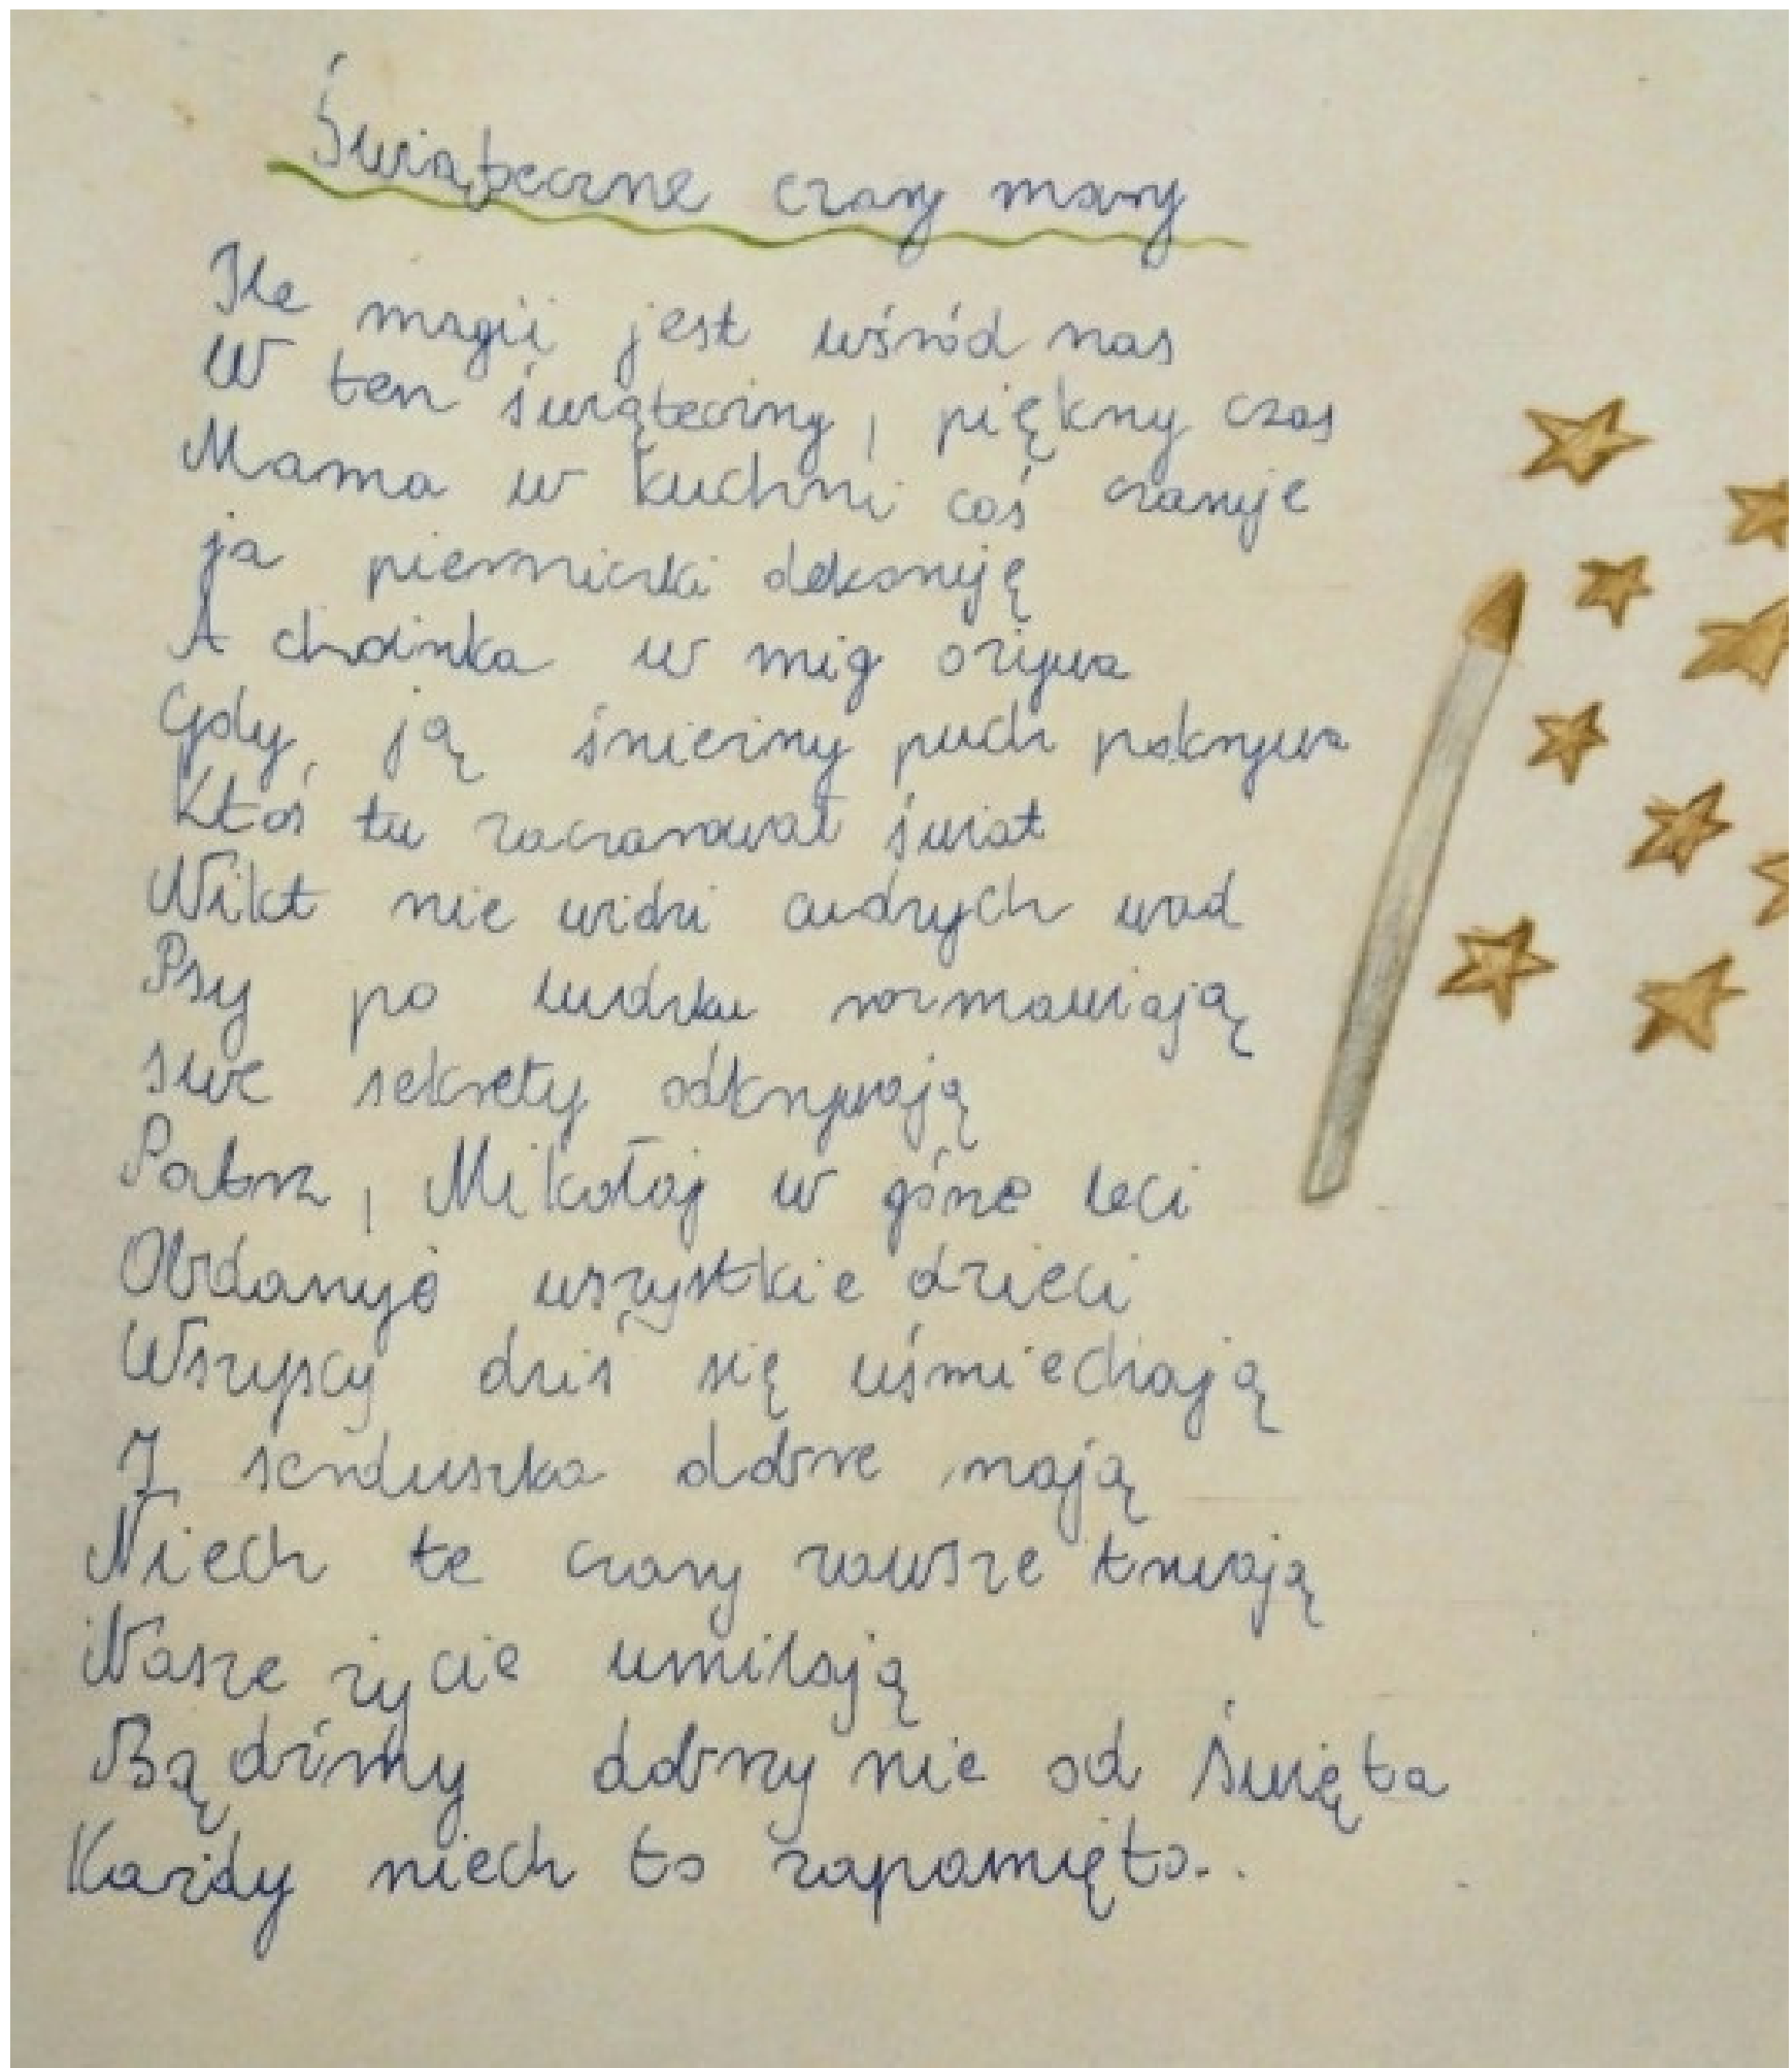 Świąteczne czary mary
Ile magii jest wśród nas
W ten świąteczny, piękny czas
Mama w kuchni coś czaruje
ja pierniczki dekoruję
A choinka w mig ożywa
Gdy, ją śnieżny puch pokrywa
Ktoś tu zaczarował świat
Nikt nie widzi cudzych wad
Psy po ludzku rozmawiają
swe sekrety odkrywają
Patrz, Mikołaj w górze leci
Obdaruje wszystkie dzieci
Wszyscy dziś się uśmiechają
I serduszka dobre mają
Niech te czary zawsze trwają
Nasze życie umilają
Bądźmy dobrzy nie od święta
Każdy niech to zapamięta..